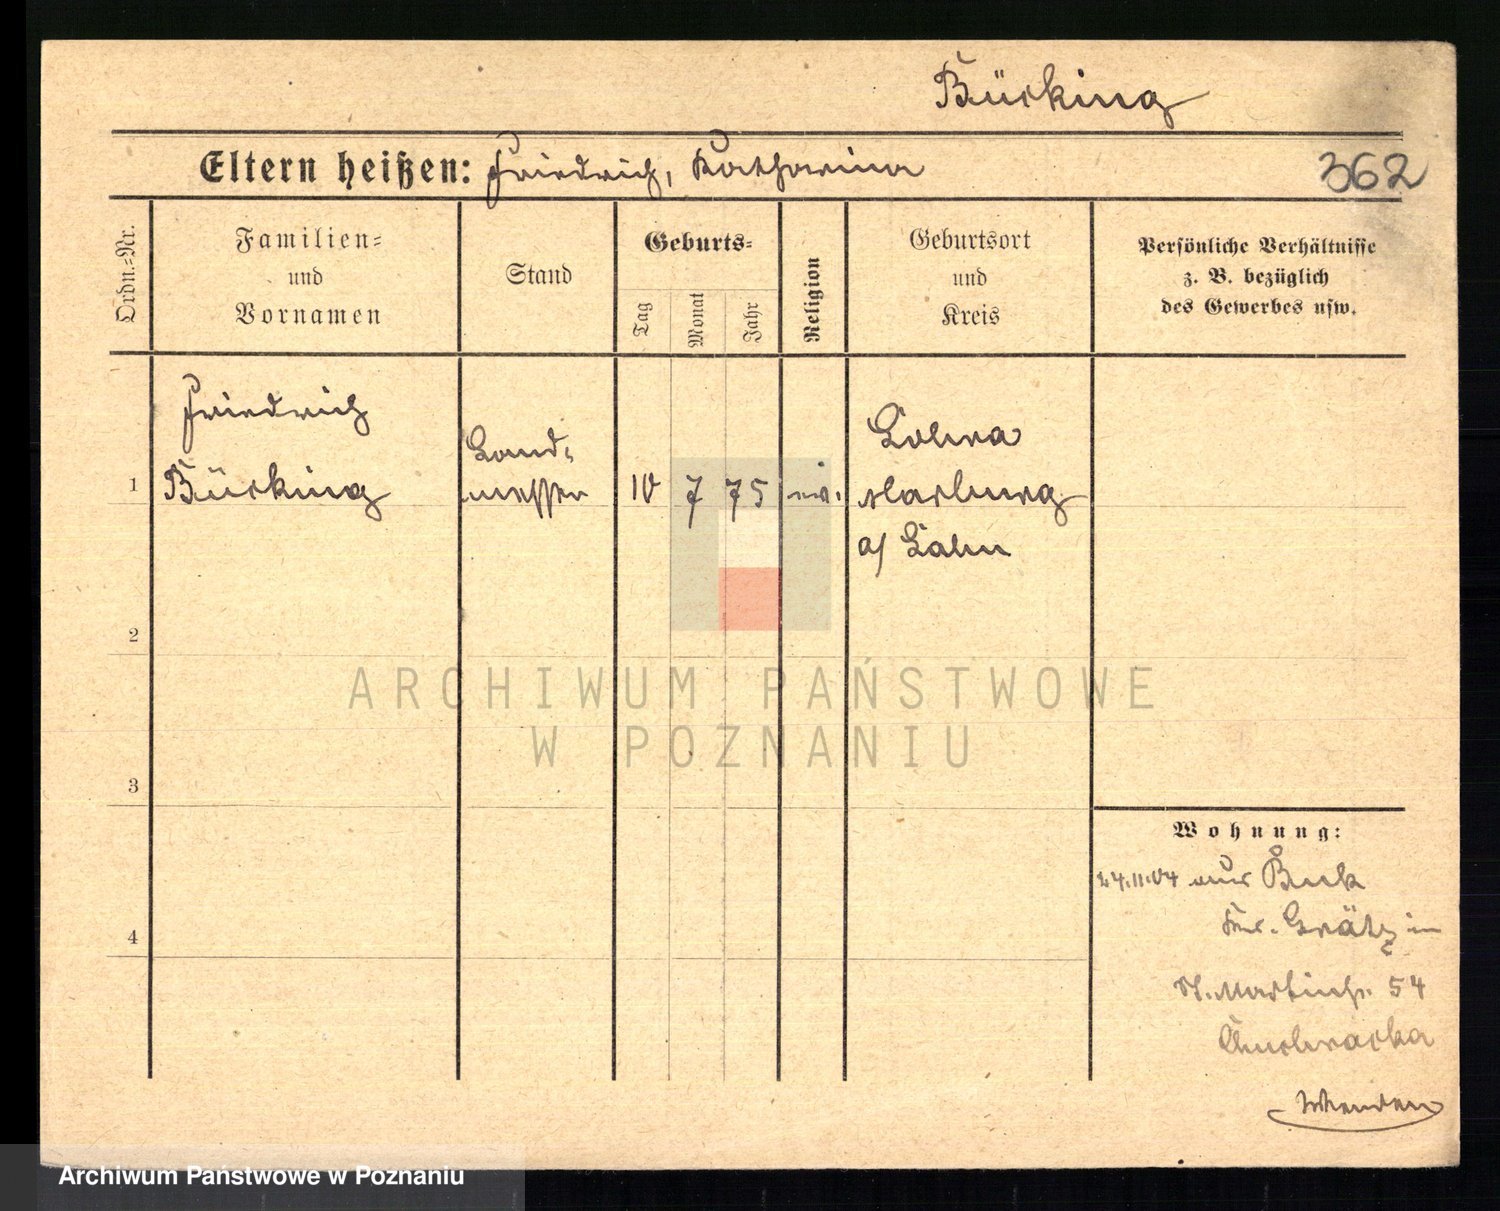 Bücking
Eltern heißen: Friedrich, Katharina
362
Ordn.=Nr.
Familien=
und
Vornamen
Stand
Geburts=
Tag
Monat
Jahr
Religion
Geburtsort
und
Kreis
Persönliche Verhältnisse
z. B. bezüglich
des Gewerbes usw.
1
Friedrich
Bücking
Land=
messer
10
7
75
ev.
Lohra
Marburg
a/ Lahn
2
3
4
ARCHIWUM PAŃSTWOWE
W POZNANIU
Wohnung:
24.11.04 aus Buk
Kr. Grätz in
St. Martinstr. 54
Archiwum Państwowe w Poznaniu